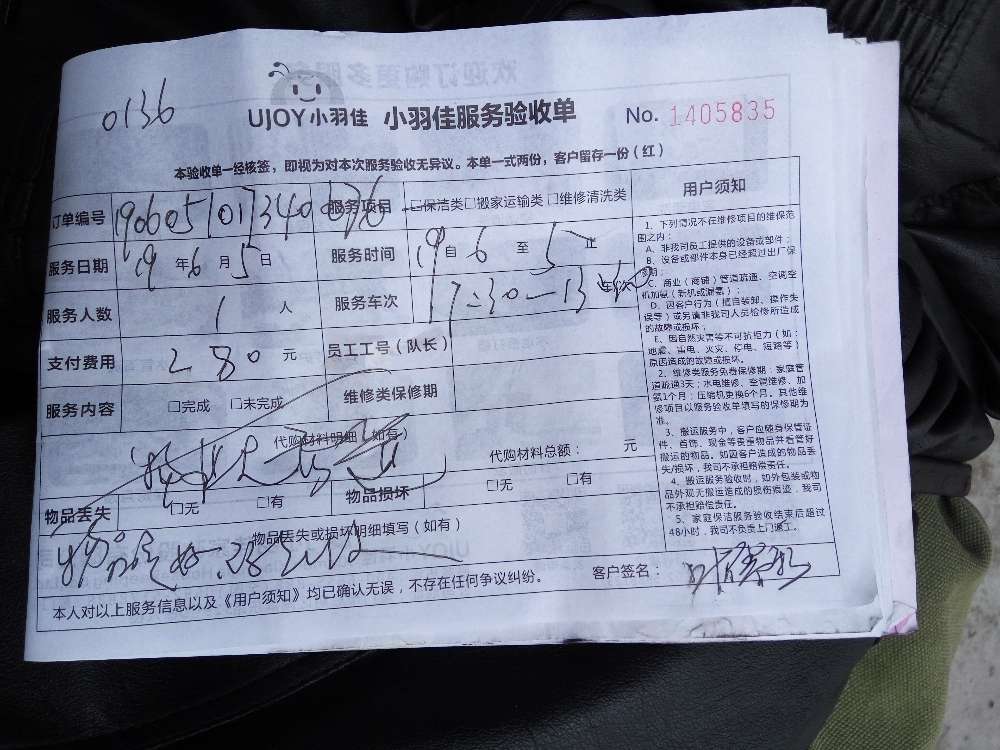 0136
UJOY小羽佳 小羽佳服务验收单 No. 1405835
本验收单一经核签，即视为对本次服务验收无异议。本单一式两份，客户留存一份（红）
订单编号 190605101340 服务项目 □保洁类□搬家运输类 □维修清洗类
服务日期 19 年 6 月 5 日 服务时间 19 自 6 至 5 止
服务人数 1 人 服务车次 17:30-13
支付费用 280 元 员工工号（队长）
服务内容 □完成 □未完成 维修类保修期
代购材料明细（如有） 代购材料总额： 元
物品丢失 □无 □有 物品损坏 □无 □有
物品丢失或损坏明细填写（如有）
物品完好.280元已付
本人对以上服务信息以及《用户须知》均已确认无误，不存在任何争议纠纷。 客户签名：
用户须知
1、下列情况不在维修项目的维保范
围之内：
A、非我司员工提供的设备或部件；
B、设备或部件本身已经超过出厂保
C、商业（商铺）管道疏通、空调空
机加氨（新机或漏氨）；
D、因客户行为（擅自装卸、操作失
误等）或另请非我司人员检修所造成
的故障或损坏；
E、因自然灾害等不可抗拒力（如：
地震、雷电、火灾、停电、短路等）
原因造成的故障或损坏。
2、维修类服务免费保修期：家庭管
道疏通3天；水电维修、空调维修、加
氨1个月；压缩机更换6个月。其他维
修项目以服务验收单填写的保修期为
准。
3、搬运服务中，客户应随身保管证
件、首饰、现金等贵重物品并看管好
搬运的物品。如因客户造成的物品丢
失/损坏，我司不承担赔偿责任。
4、搬运服务验收时，如外包装或物
品外观无搬运造成的损伤痕迹，我司
不承担赔偿责任。
5、家庭保洁服务验收结束后超过
48小时，我司不负责上门返工。